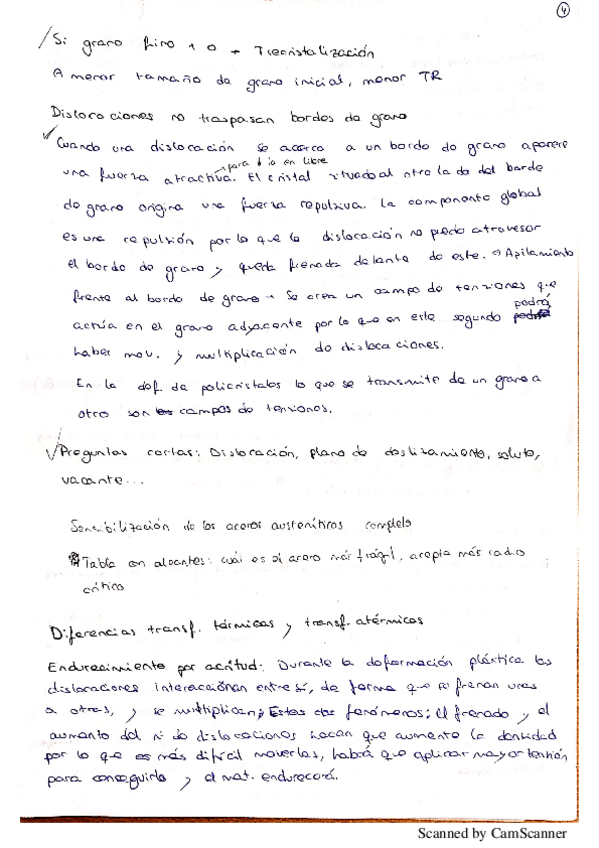 4
Si grano fino + o → Trecristalización
A menor tamaño de grano inicial, menor TR
Dislocaciones no traspasan bordes de grano
Cuando una dislocación se acerca a un borde de grano aparece
para
en libre
una fuerza atractiva. El cristal situado al otro lado del borde
de grano origina una fuerza repulsiva. La componente global
es una repulsión por lo que la dislocación no puede atravesar
el borde de grano y queda frenada delante de este. → Apilamiento
frente al borde de grano → Se crea un campo de tensiones que
podrá
actúa en el grano adyacente por lo que en este segundo
haber mov. y multiplicación de dislocaciones.
En la def. de policristales lo que se transmite de un grano a
otro son los campos de tensiones.
Preguntas cortas: Dislocación, plano de deslizamiento, soluto,
vacante...
Sensibilización de los aceros austeníticos completo
Tabla con aleantes: cuál es el acero más frágil, acepta más
crítico
Diferencias transf. térmicas y transf. atérmicas
Endurecimiento por acritud: Durante la deformación plástica las
dislocaciones interaccionan entre sí, de forma que se frenan unas
a otras, y se multiplican; Estos dos fenómenos; El frenado y el
aumento del nº de dislocaciones hacen que aumente la densidad
por lo que es más difícil moverlas, habrá que aplicar mayor tensión
para conseguirlo y el mat. endurecerá.
Scanned by CamScanner